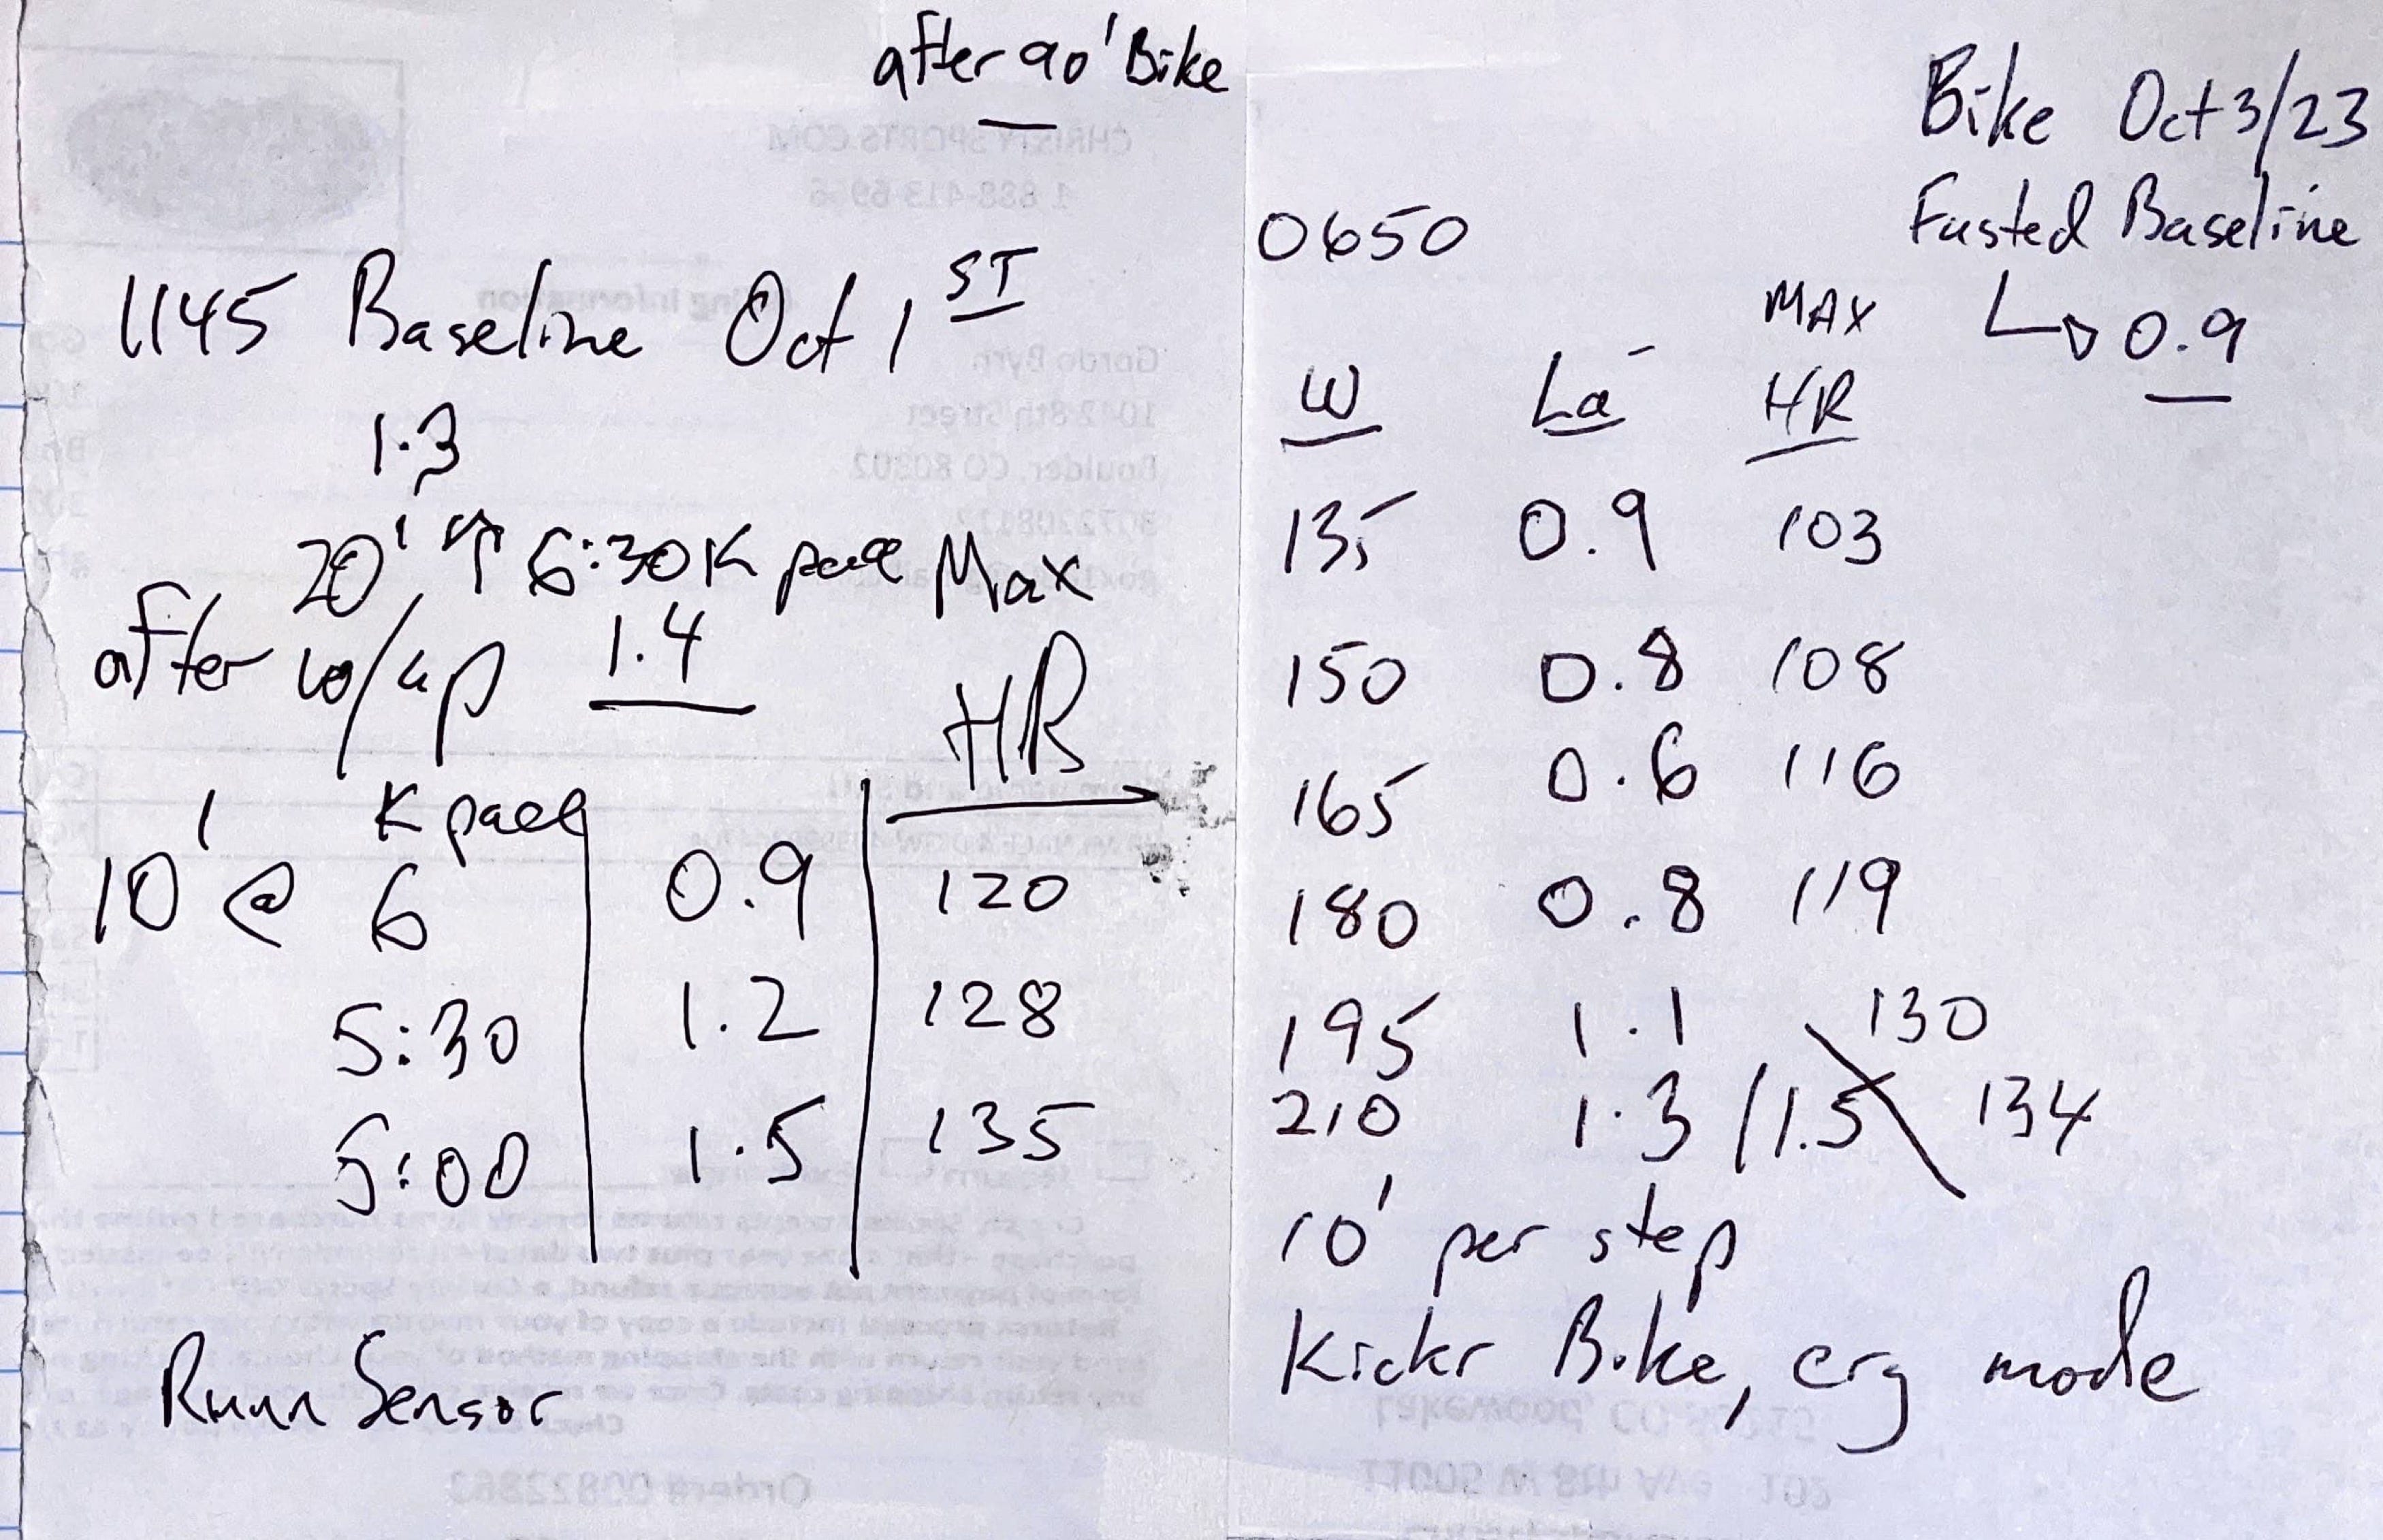 after 90' Bike
1145 Baseline Oct 1ST
1.3
20' ↑ 6:30 K pace Max
after w/up 1.4
HR
K pace
10' @ 6 0.9 120
5:30 1.2 128
5:00 1.5 135
Runn Sensor
Bike Oct 3/23
Fasted Baseline
↳ 0.9
0650
MAX
W La- HR
135 0.9 103
150 0.8 108
165 0.6 116
180 0.8 119
195 1.1 130
210 1.3 / 1.5 134
10' per step
Kickr Bike, erg mode